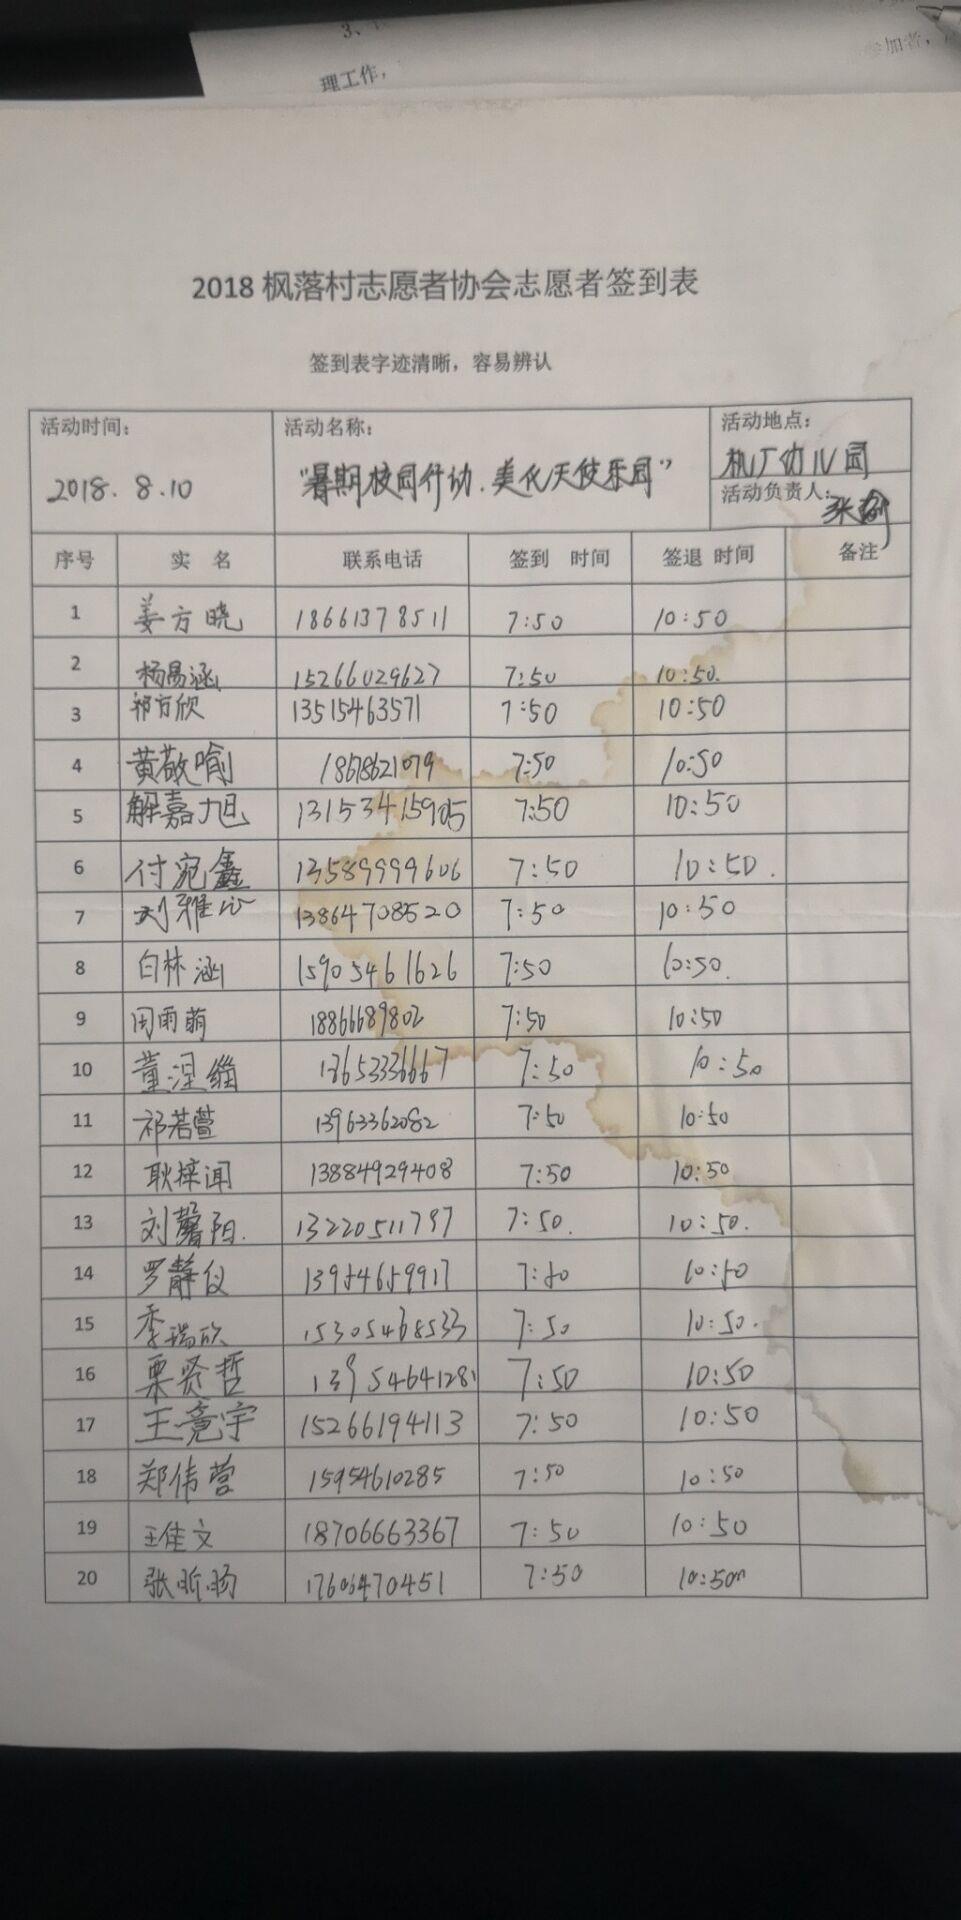 3、
理工作，
参加者，
2018 枫落村志愿者协会志愿者签到表
签到表字迹清晰，容易辨认
活动时间： 活动名称： 活动地点：
2018. 8.10 “暑期校园行动.美化天使乐园” 机厂幼儿园
活动负责人：
序号 实 名 联系电话 签到 时间 签退 时间 备注
1 姜方晓 18661378511 7:50 10:50
2 杨易涵 15266029627 7:50 10:50.
3 祁方欣 13515463571 7:50 10:50
4 黄敬喻 18678621079 7:50 10:50
5 解嘉旭 13153415905 7:50 10:50
6 付宛鑫 13589999606 7:50 10:50.
7 刘雅心 13864708520 7:50 10:50
8 白林涵 15905461626 7:50 10:50.
9 周雨萌 18866689802 7:50 10:50
10 董涅缁 13653336667 7:50 10:50
11 祁若萱 13963362082 7:50 10:50
12 耿梓闻 13884929408 7:50 10:50
13 刘馨阳. 13220511797 7:50. 10:50.
14 罗静仪 13954659917 7:50 10:50
15 季瑞欣 15305468533 7:50 10:50.
16 栗贤哲 13954641281 7:50 10:50
17 王竟宇 15266194113 7:50 10:50
18 郑伟营 15954610285 7:50 10:50
19 王佳文 18706663367 7:50 10:50
20 张昕旸 17606470451 7:50 10:50